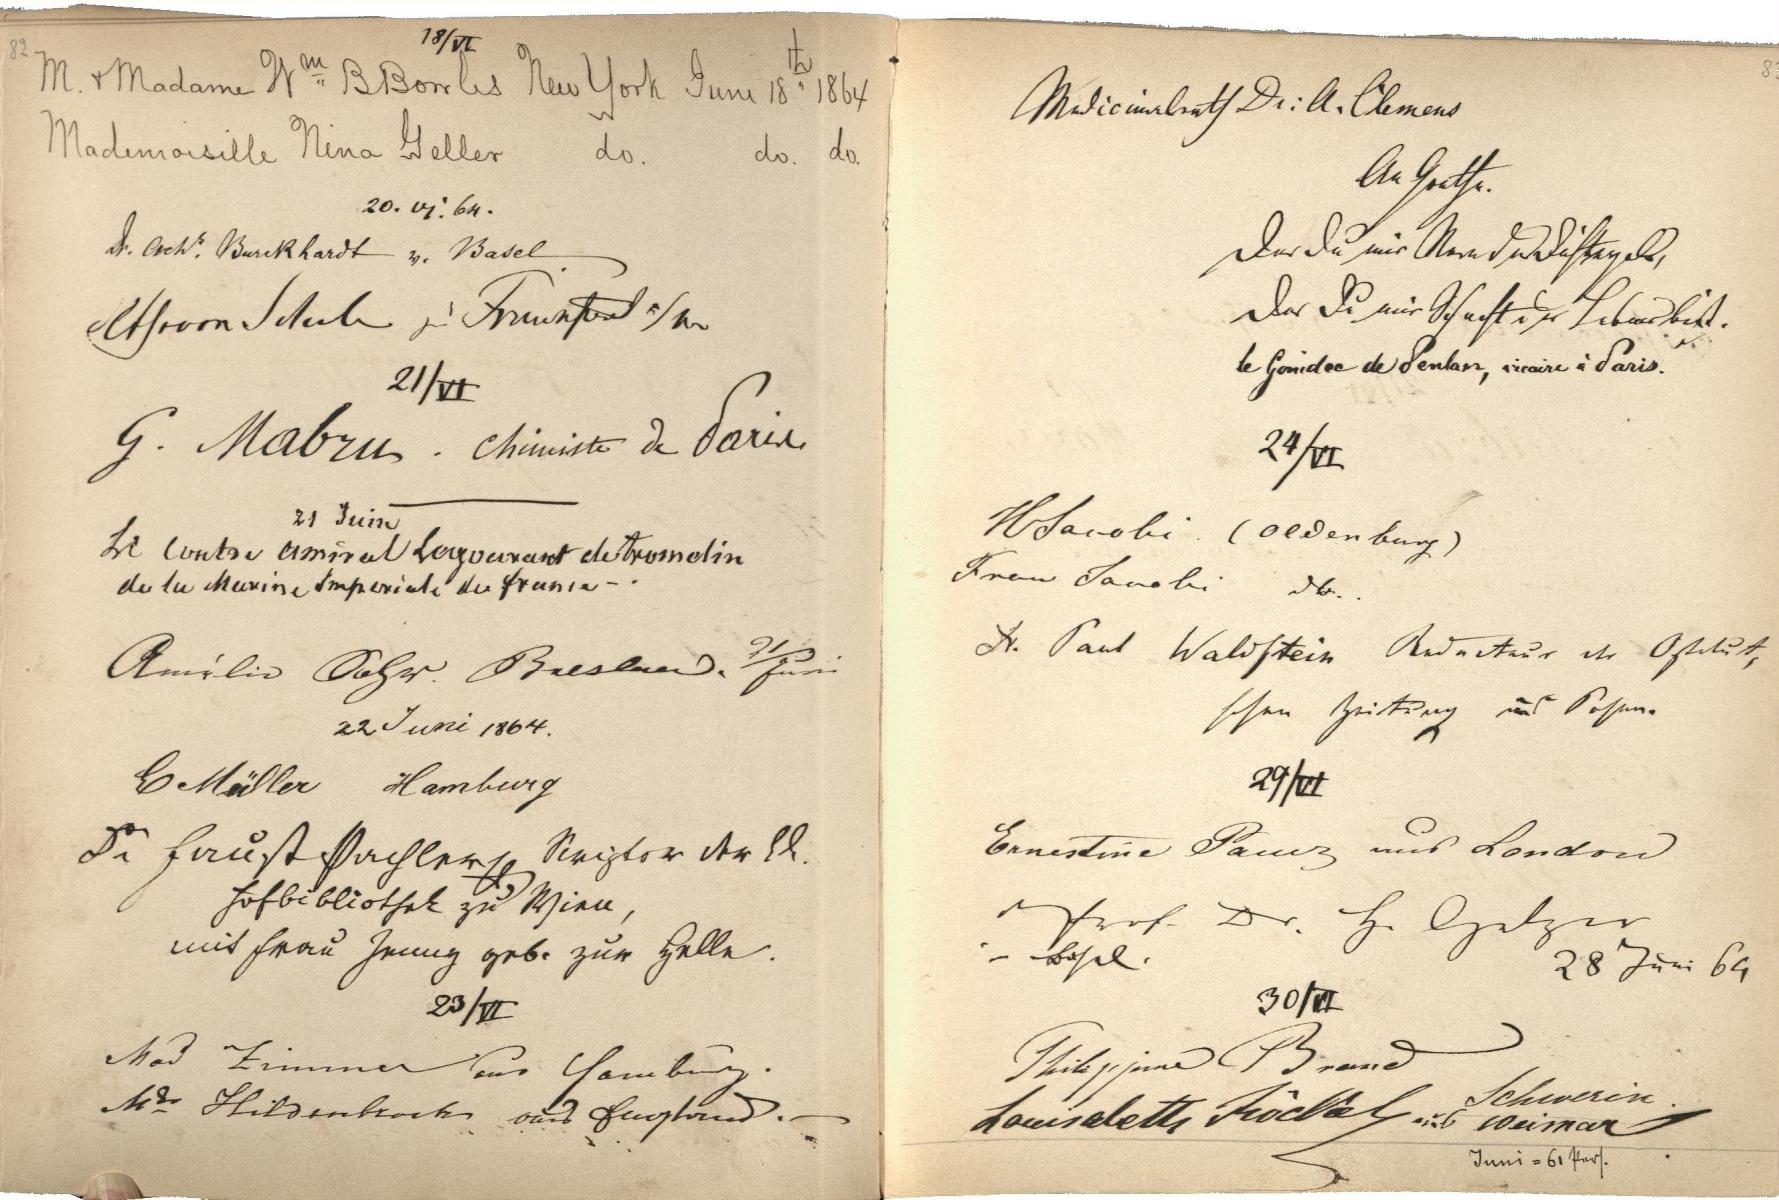 82
18/VI
M. & Madame Wm B Bowles New York June 18th 1864
Mademoiselle Nina Geller do. do. do.
20. VI. 64.
Dr. Burckhardt v. Basel
zu Frankfurt a/M
21/VI
G. Mabru. chimiste de Paris
21 Juin
Le Contre amiral Lagourant de tromelin
de la Marine Imperiale de france
Amélie Breslau. 21/Juni
22 Juni 1864.
E Müller Hamburg
Dr Faust Pachler, Scriptor der kk.
Hofbibliothek zu Wien,
mit Frau Jenny geb. zur Helle.
23/VI
Mad Zimmer aus Hamburg.
Mde Hildenbrock aus England.
83
Medicinalrath Dr: A. Clemens
An Goethe.
Der Du mir
Der Du mir Lebens bist.
le Gonidec de Penlan, vicaire à Paris.
24/VI
H Jacobi. (Oldenburg)
Frau Jacobi do.
Dr. Paul Waldstein Redacteur der Ostdeut,
schen Zeitung aus Posen.
29/VI
Ernestine Pauer aus London
Prof. Dr. H. Gelzer
Basel.
28 Juni 64
30/VI
Philippine Brand
Schwerin.
Louisabeth Röckel aus Weimar
Juni = 61 Pers.